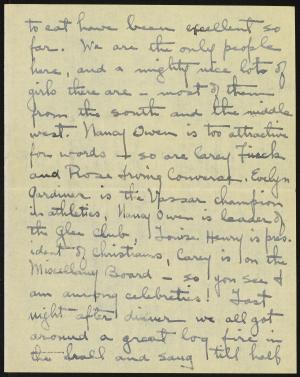 to eat have been excellent so
far. We are the only people
here, and a mighty nice lots of
girls there are - most of them
from the south and the middle
west. Nancy Owen is too attractive
for words - so are Carey
and Rose Irving Converse. Evelyn
Gardiner is the Vassar champion
in athletics, Nancy Owen is leader of
the Glee Club, Louise Henry is pres-
ident of Christians, Carey is on the
Miscellany Board - so you see I
am among celebrities! Last
night after dinner we all got
around a great log fire in
the hall and sang till half